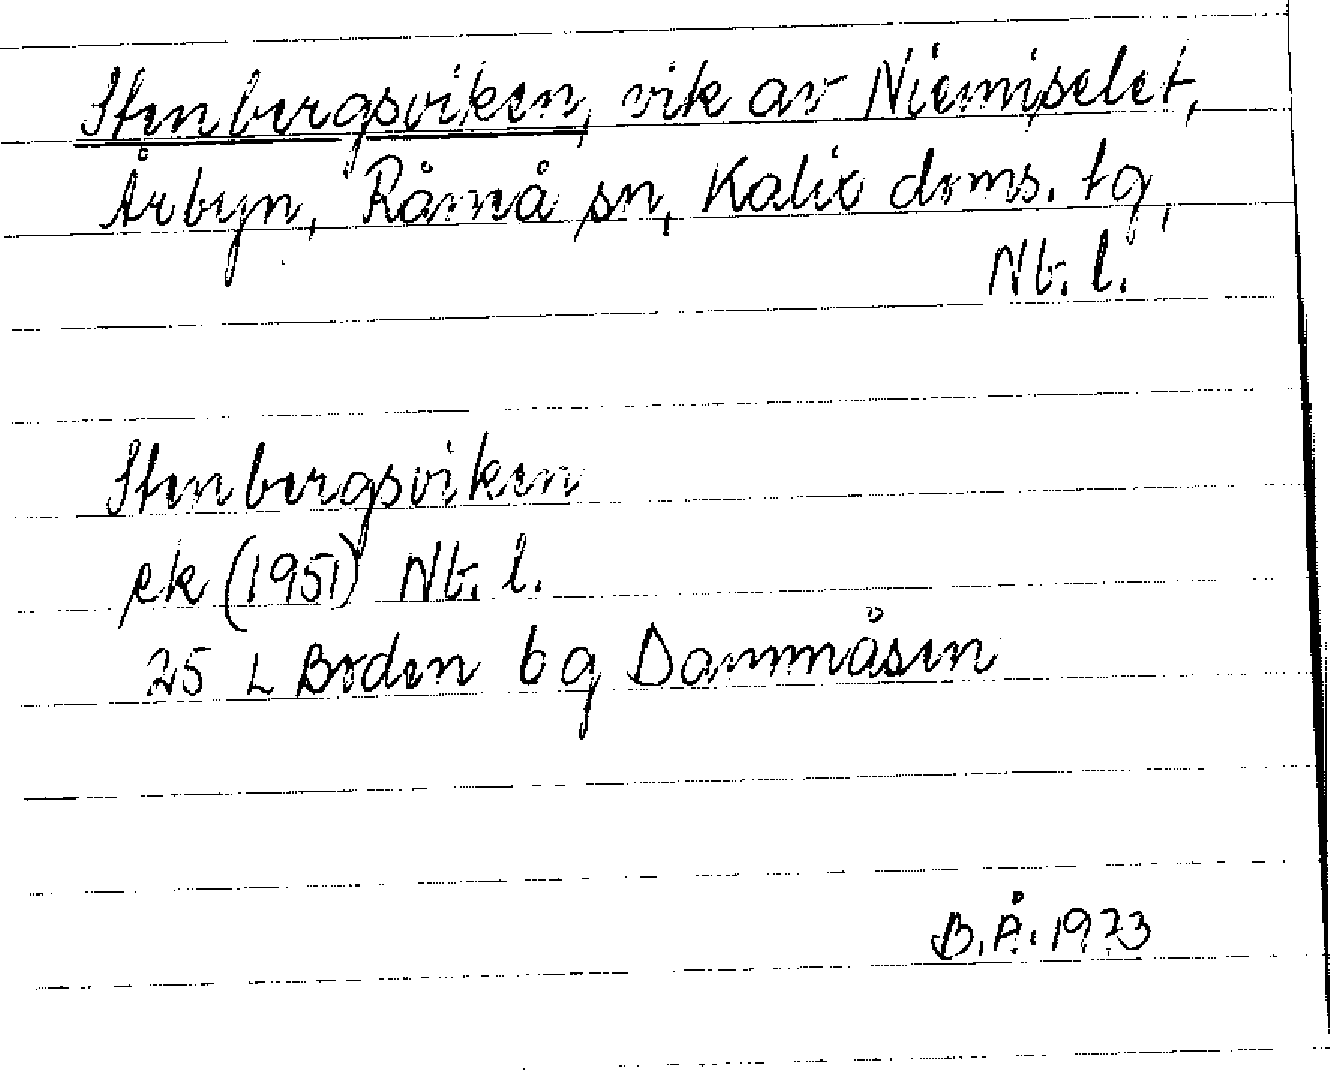 Stenbergsviken, vik av Niemiselet,
Årbyn, Råneå sn, Kalix doms. tg,
Nb. l.
Stenbergsviken
ek (1951) Nb. l.
25 L Boden b g Dammåsen
B.Å. 1973